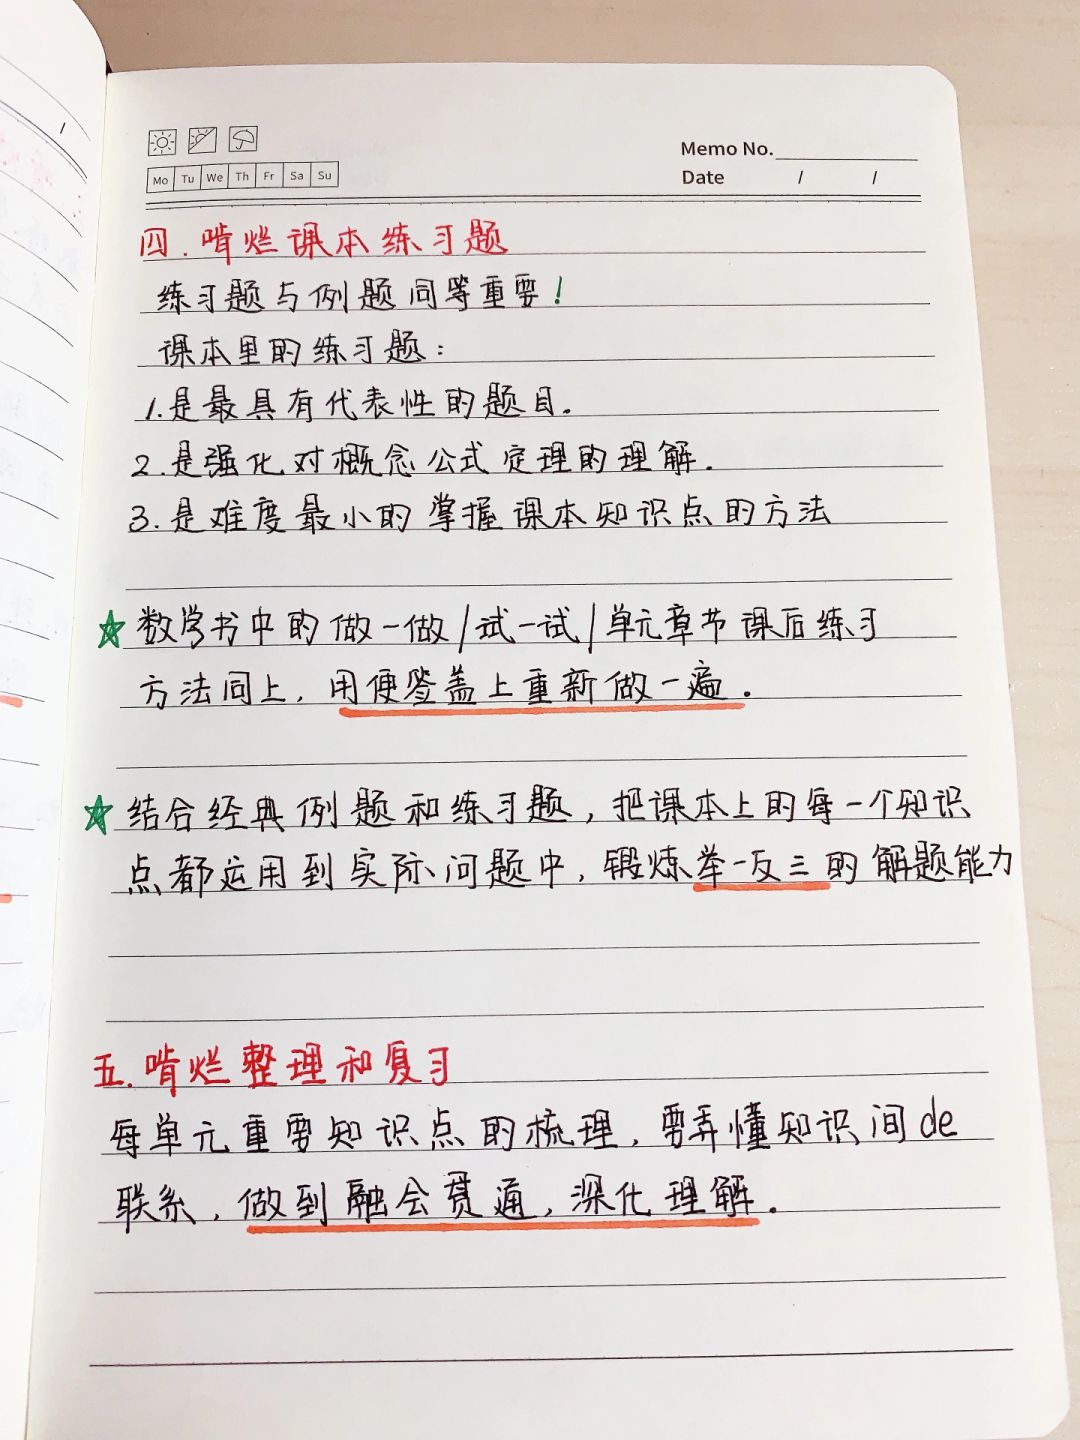 Memo No.
Mo Tu We Th Fr Sa Su
Date / /
四.啃烂课本练习题
练习题与例题同等重要!
课本里的练习题:
1.是最具有代表性的题目.
2.是强化对概念公式定理的理解.
3.是难度最小的掌握课本知识点的方法
数学书中的做一做/试一试/单元章节课后练习
方法同上,用便签盖上重新做一遍.
结合经典例题和练习题,把课本上的每一个知识
点都运用到实际问题中,锻炼举一反三的解题能力
五.啃烂整理和复习
每单元重要知识点的梳理,要弄懂知识间de
联系,做到融会贯通,深化理解.